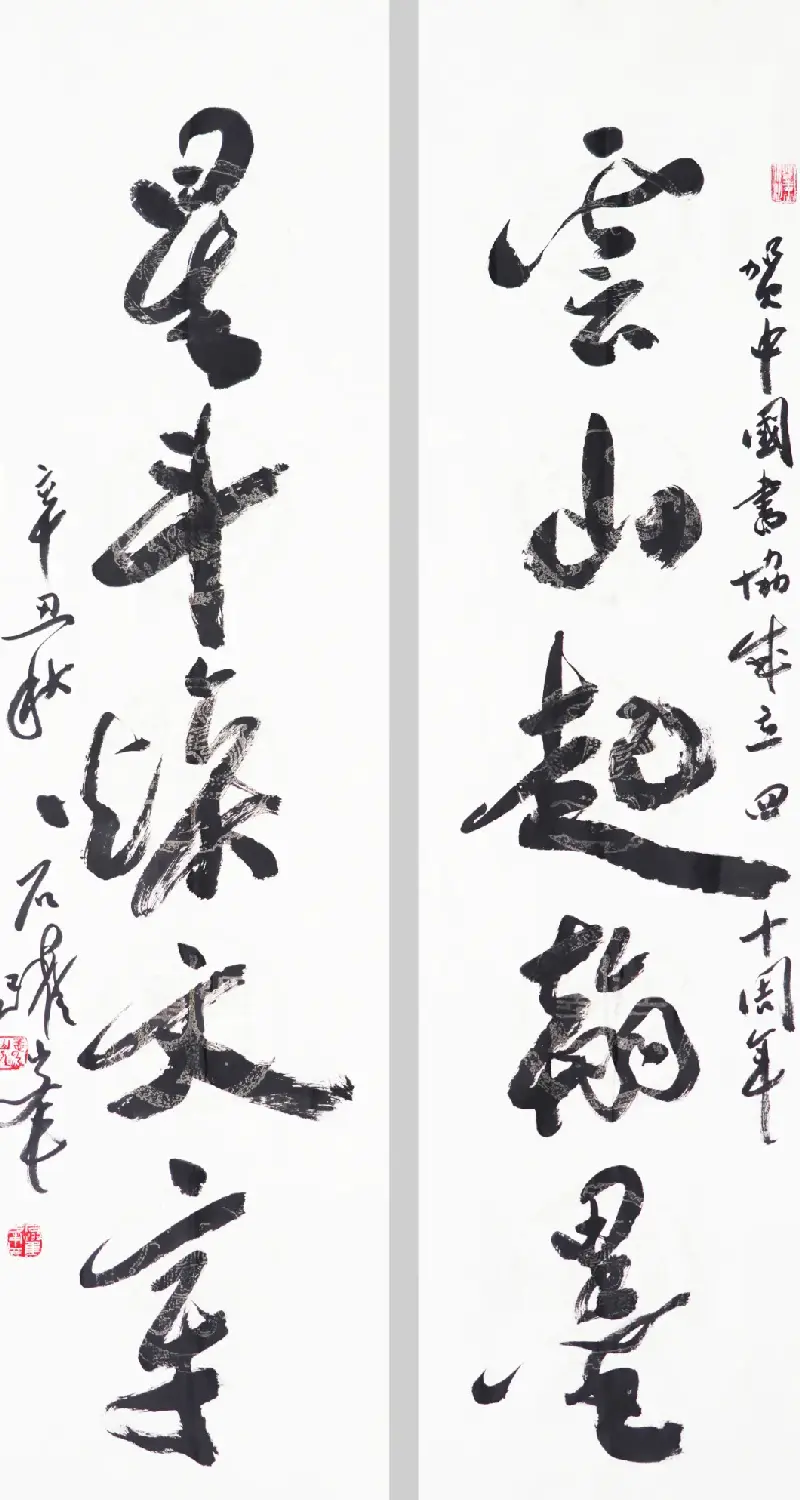 賀中國書協成立四十周年
雲山起翰墨
星斗燦文章
辛丑秋
石躍峰